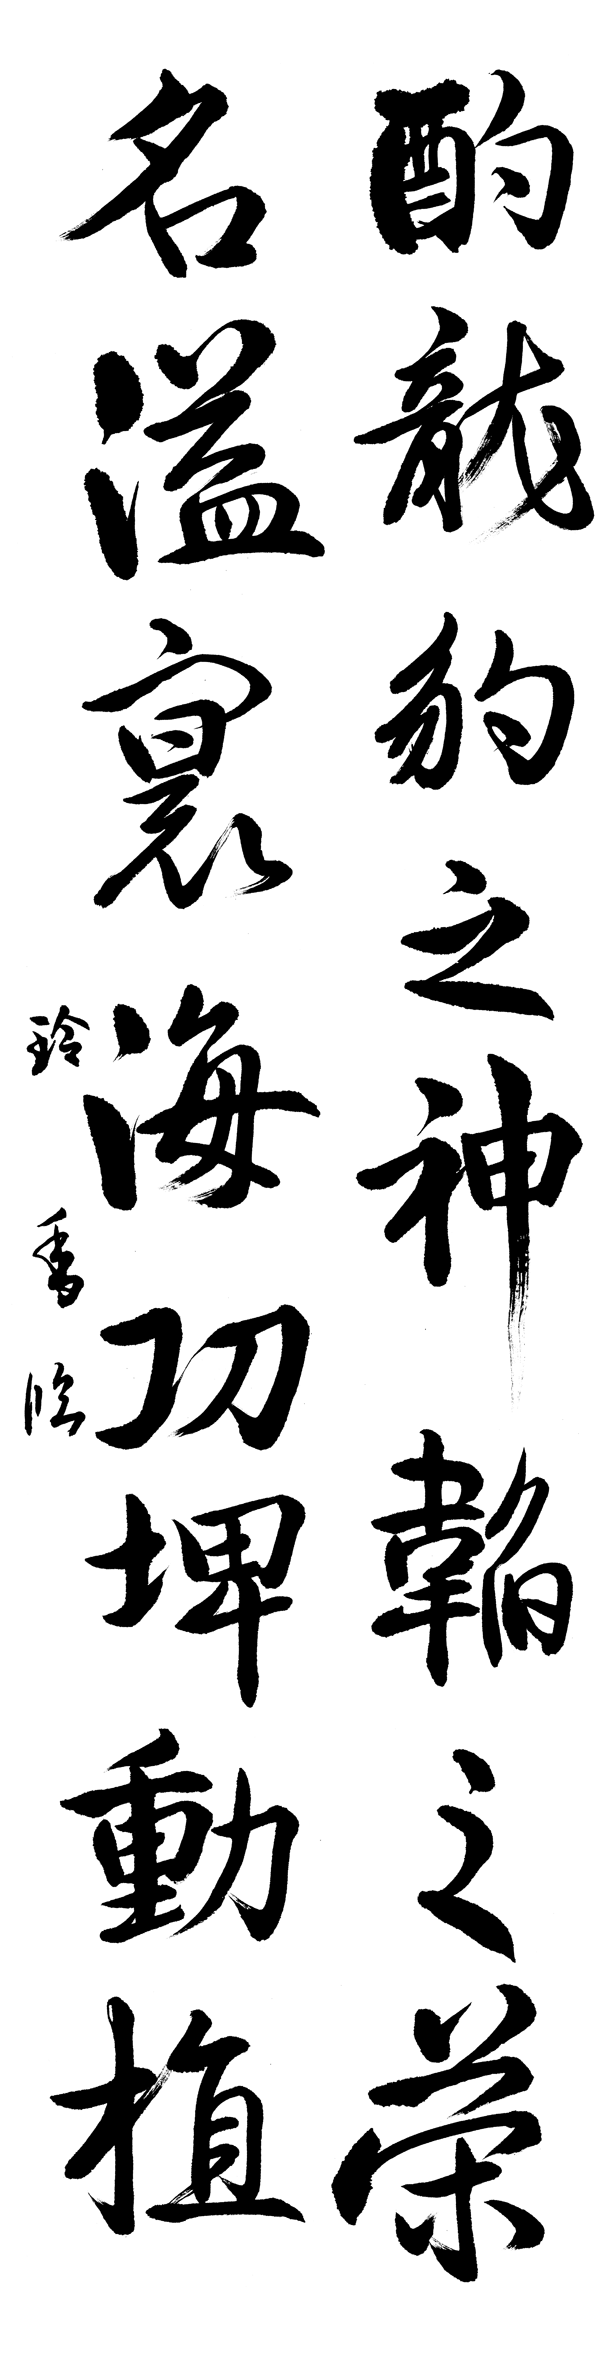 酌龍豹之神韜之榮
名溢寰海功埤動植
玲香臨